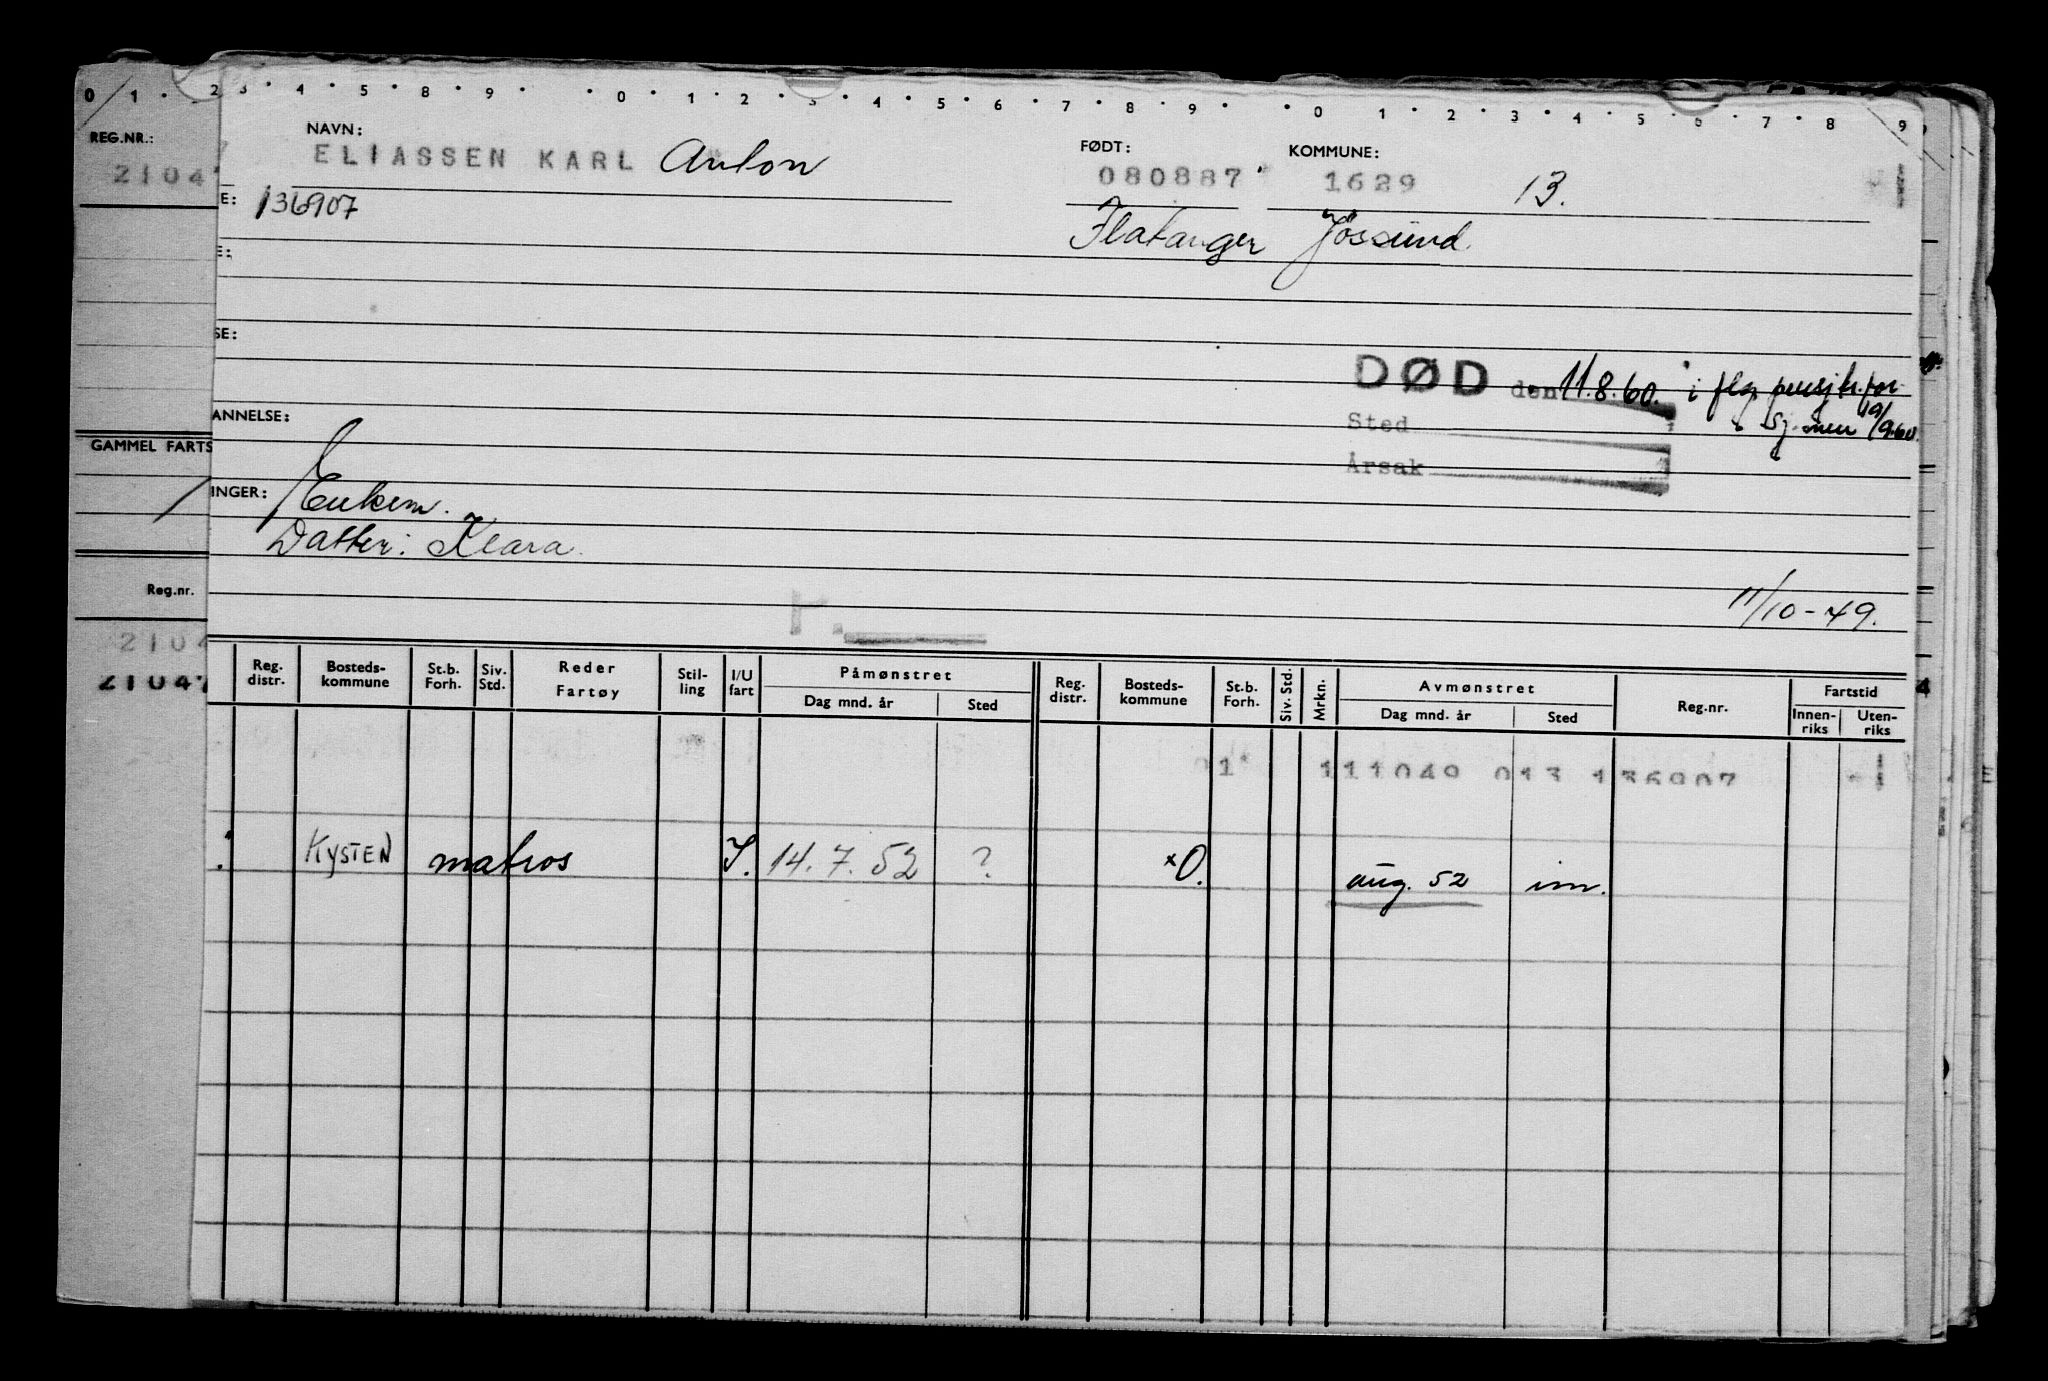 0 1 2 3 4 5 6 8 9 0 1 2 3 4 5 6 7 8 9 0 1 2 3 4 5 6 7 8 9
REG.NR.:
2104
NAVN:
ELIASSEN KARL Anton
FØDT:
080887
KOMMUNE:
1629 13.
E: 136907
Flatanger Jøssund.
E:
SE:
DØD den 11.8.60. i flg. pensjtr. for
Sj.men 19/9.60.
Sted
Årsak
ANNELSE:
GAMMEL FARTS
INGER: Enkem.
Datter: Klara.
Reg.nr.
11/10-49.
2104
21047
Reg. distr. Bosteds-kommune St.b. Forh. Siv. Std. Reder Fartøy Stil-ling I/U fart Påmønstret Dag mnd. år Sted Reg. distr. Bosteds-kommune St.b. Forh. Siv. Std. Mrkn. Avmønstret Dag mnd. år Sted Reg.nr. Fartstid Innen-riks Uten-riks
1 111049 013 136907
KYSTEN matros I. 14.7.52 ? xO. aug. 52 inn.